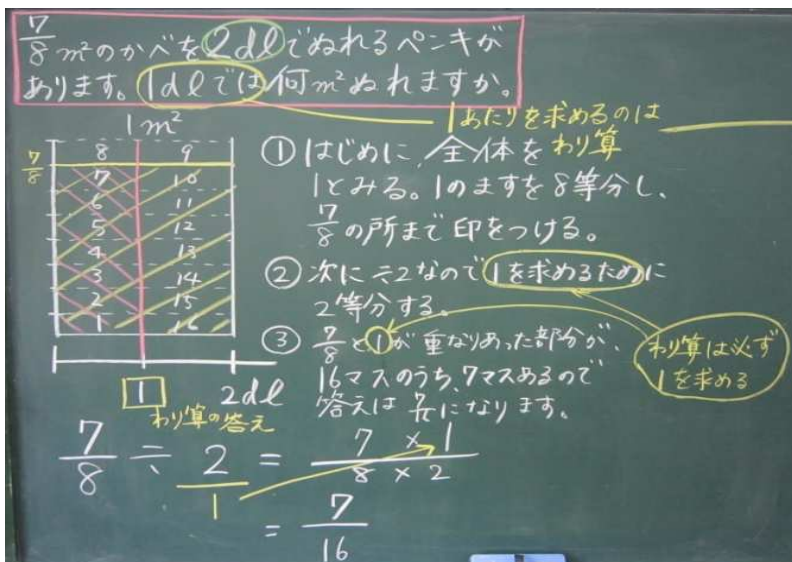 7/8 m²のかべを2dlでぬれるペンキが
あります。1dlでは何m²ぬれますか。
1あたりを求めるのは
わり算
1m²
7/8
8 9
7 10
6 11
5 12
4 13
3 14
2 15
1 16
1 2dl
わり算の答え
① はじめに、全体を
1とみる。1のますを8等分し、
7/8の所まで印をつける。
② 次に÷2なので1を求めるために
2等分する。
③ 7/8と1が重なりあった部分が、
16マスのうち、7マスあるので
答えは7/16になります。
わり算は必ず
1を求める
7/8 ÷ 2/1 = 7×1/8×2
= 7/16